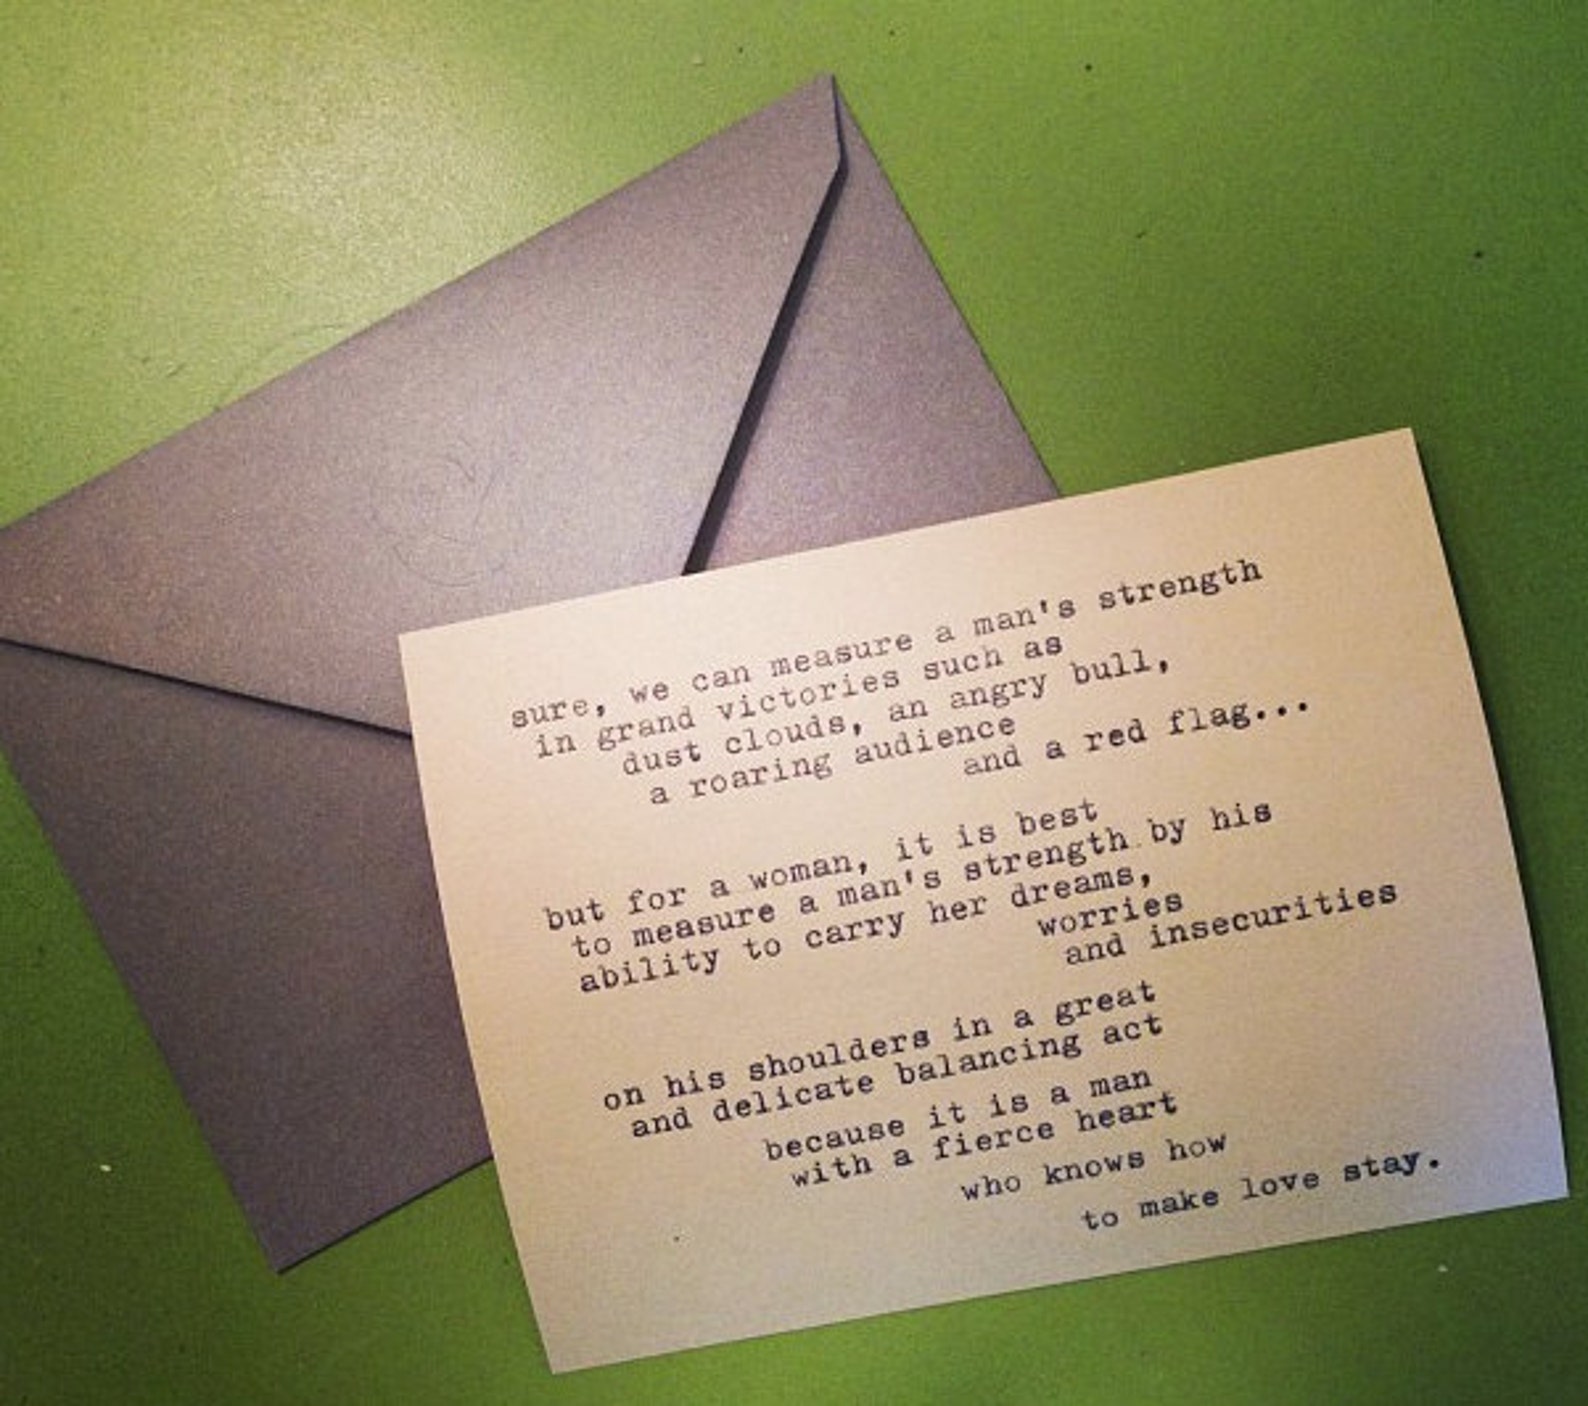 sure, we can measure a man's strength
in grand victories such as
dust clouds, an angry bull,
a roaring audience
and a red flag...
but for a woman, it is best
to measure a man's strength by his
ability to carry her dreams,
worries
and insecurities
on his shoulders in a great
and delicate balancing act
because it is a man
with a fierce heart
who knows how
to make love stay.